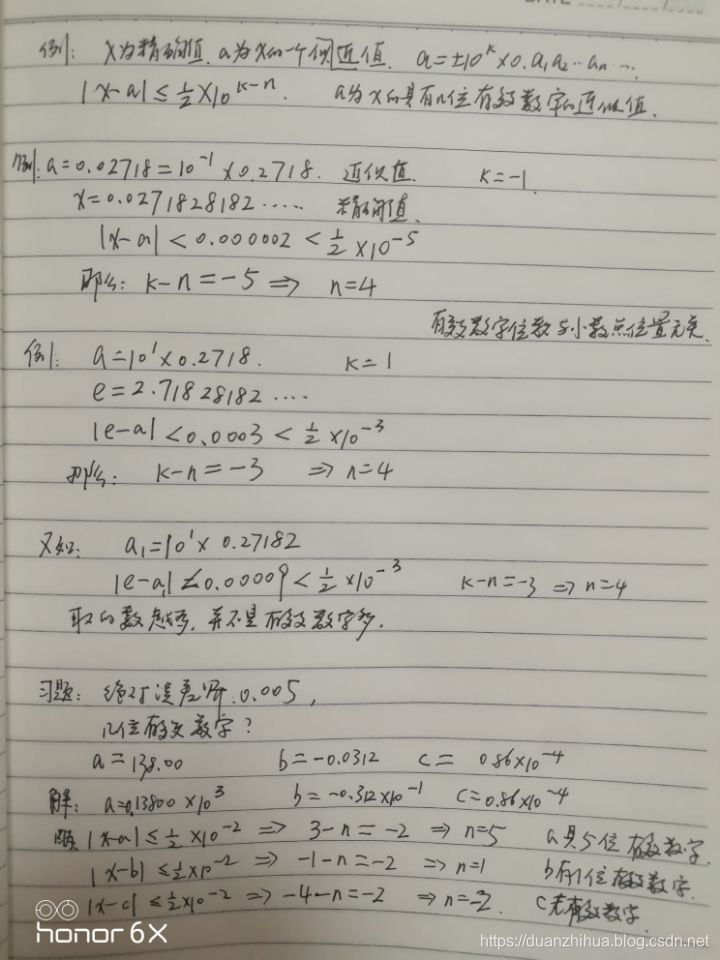 DATE
例: X为精确值. a为X的一个似近值. a=±10^k×0.a₁a₂…aₙ….
|x-a|≤½×10^(k-n). a为x的具有n位有效数字的近似值.
例: a=0.02718=10⁻¹×0.2718. 近似值. K=-1.
x=0.0271828182..... 精确值.
|x-a|<0.000002<½×10⁻⁵
那么: k-n=-5⇒ n=4
有效数字位数与小数点位置无关.
例: a=10¹×0.2718. k=1
e=2.71828182....
|e-a|<0.0003<½×10⁻³
那么: k-n=-3 ⇒n=4
又如: a₁=10¹×0.27182
|e-a₁|≤0.00009<½×10⁻³ k-n=-3 ⇒n=4
取的数越多, 并不是有效数字多.
习题: 绝对误差 0.005,
几位有效数字?
a=138.00 b=-0.0312 c= 0.86×10⁻⁴
解: a=0.13800×10³ b=-0.312×10⁻¹ c=0.86×10⁻⁴
|x-a|≤½×10⁻² ⇒ 3-n=-2 ⇒n=5 a具5位有效数字.
|x-b|≤½×10⁻² ⇒ -1-n=-2 ⇒n=1 b有1位有效数字.
|x-c|≤½×10⁻² ⇒ -4-n=-2 ⇒n=-2. c无有效数字.
honor 6X
https://duanzhihua.blog.csdn.net